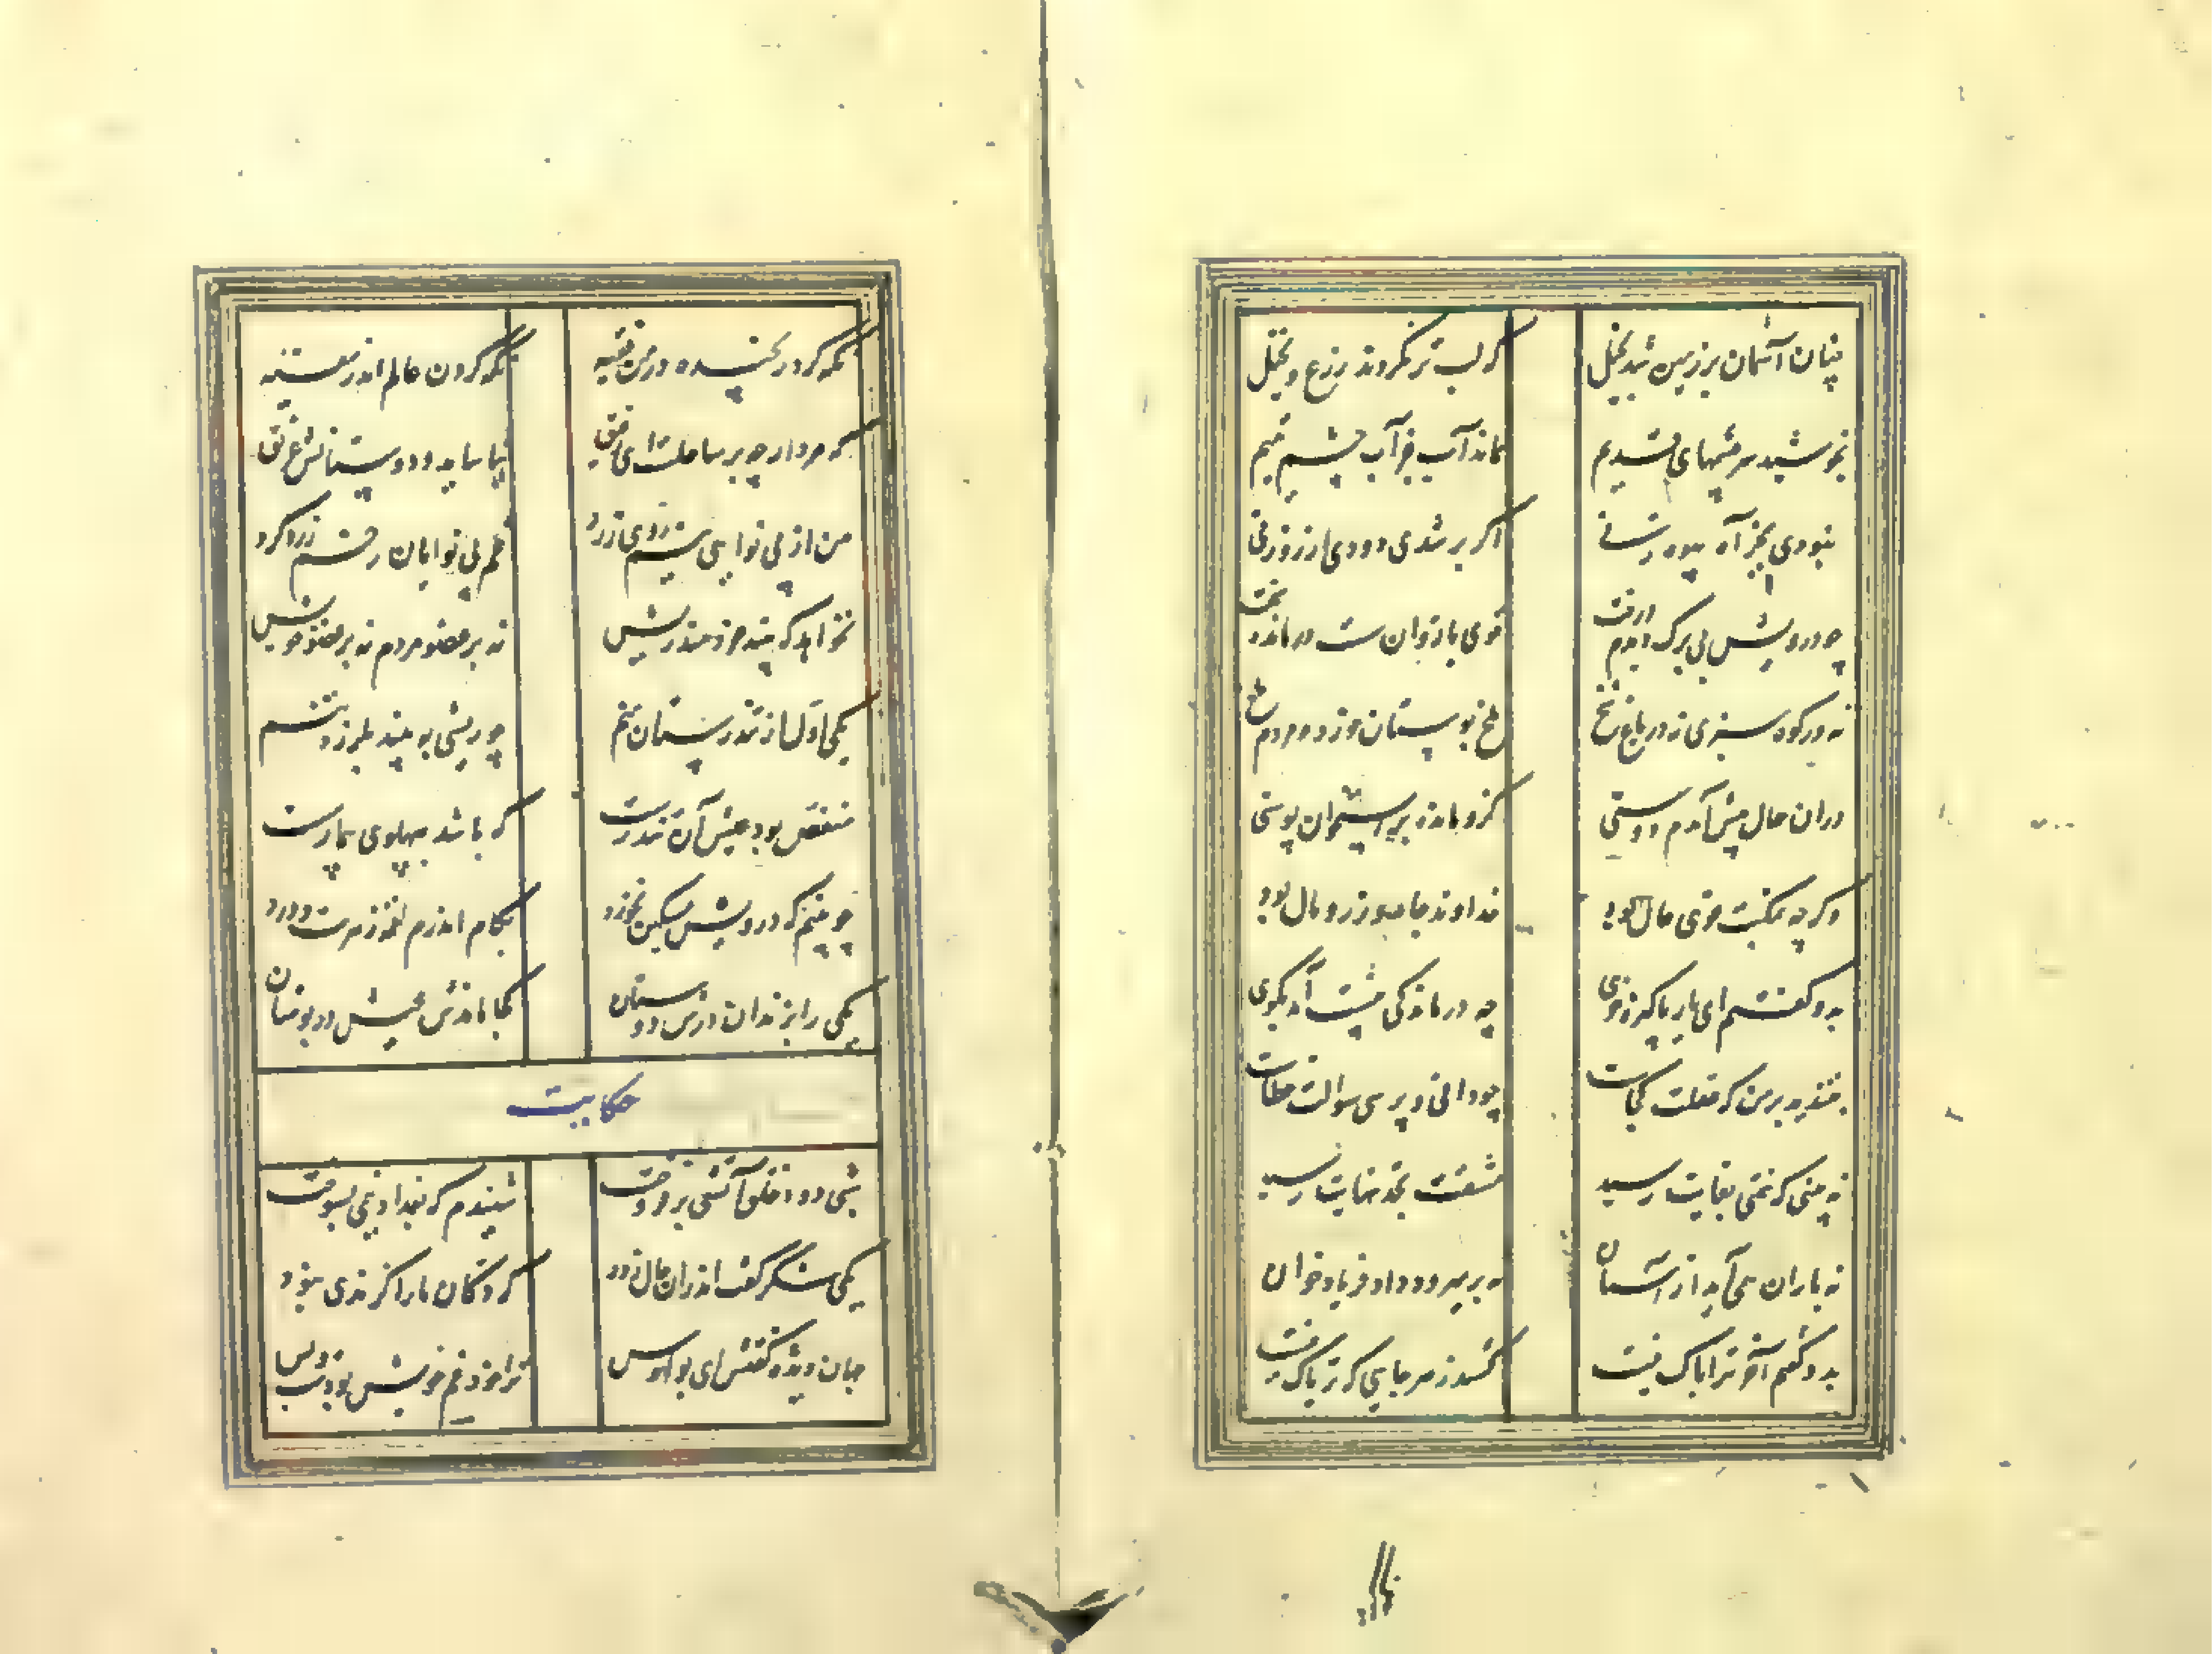 چنان آسمان بر زمین شد بخیل که لب تر نکردند زرع و نخیل
بخوشید سرچشمهای قدیم نماند آب جز آب چشم یتیم
نبودی بجز آه بیوه زنی اگر بر شدی دودی از روزنی
چو درویش بی برگ دیدم درخت قوی بازوان سست و درمانده سخت
نه در کوه سبزی نه در باغ شخ ملخ بوستان خورد و مردم ملخ
دران حال پیش آمدم دوستی کزو مانده بر استخوان پوستی
وگرچه بمکنت قوی حال بود خداوند جاه و زر و مال بود
بدو گفتم ای یار پاکیزه خوی چه درماندگی پیشت آمد بگوی
بغرید بر من که عقلت کجاست چو دانی و پرسی سوالت خطاست
نه بینی که سختی بغایت رسید مشقت بحد نهایت رسید
نه باران همی آید از آسمان نه بر میرود داد فریاد خوان
بدو گفتم آخر ترا باک نیست کشد زهر جایی که تریاک نیست
نگه کرد رنجیده در من فقیه نگه کردن عالم اندر سفیه
که مرد ار چه بر ساحلست ای رفیق نیاساید و دوستانش غریق
من از بی نوایی نیم روی زرد غم بی نوایان رخم زرد کرد
نخواهد که بیند خردمند ریش نه بر عضو مردم نه بر عضو خویش
یکی اول از تندرستان منم چو ریشی به بینم بلرزد تنم
منغص بود عیش آن تندرست که باشد بپهلوی بیمار سست
چو بینم که درویش مسکین نخورد بکام اندرم لقمه زهرست و درد
یکی را بزندان درش دوستان کجا ماندش عیش در بوستان
حکایت
شبی دود خلق آتشی بر فروخت شنیدم که بغداد نیمی بسوخت
یکی شکر گفت اندران حال زود که دکان ما را گزندی نبود
جهان دیده گفتش ای بوالهوس ترا خود غم خویش بود و بس